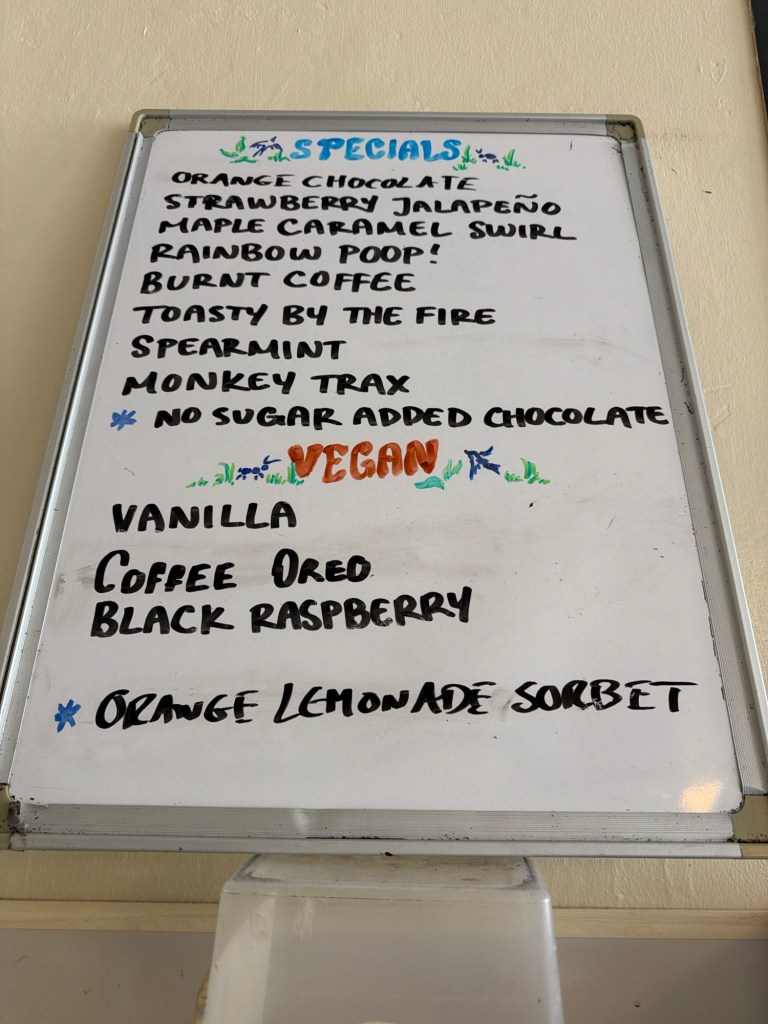 SPECIALS
ORANGE CHOCOLATE
STRAWBERRY JALAPEÑO
MAPLE CARAMEL SWIRL
RAINBOW POOP!
BURNT COFFEE
TOASTY BY THE FIRE
SPEARMINT
MONKEY TRAX
* NO SUGAR ADDED CHOCOLATE
VEGAN
VANILLA
COFFEE OREO
BLACK RASPBERRY
* ORANGE LEMONADE SORBET